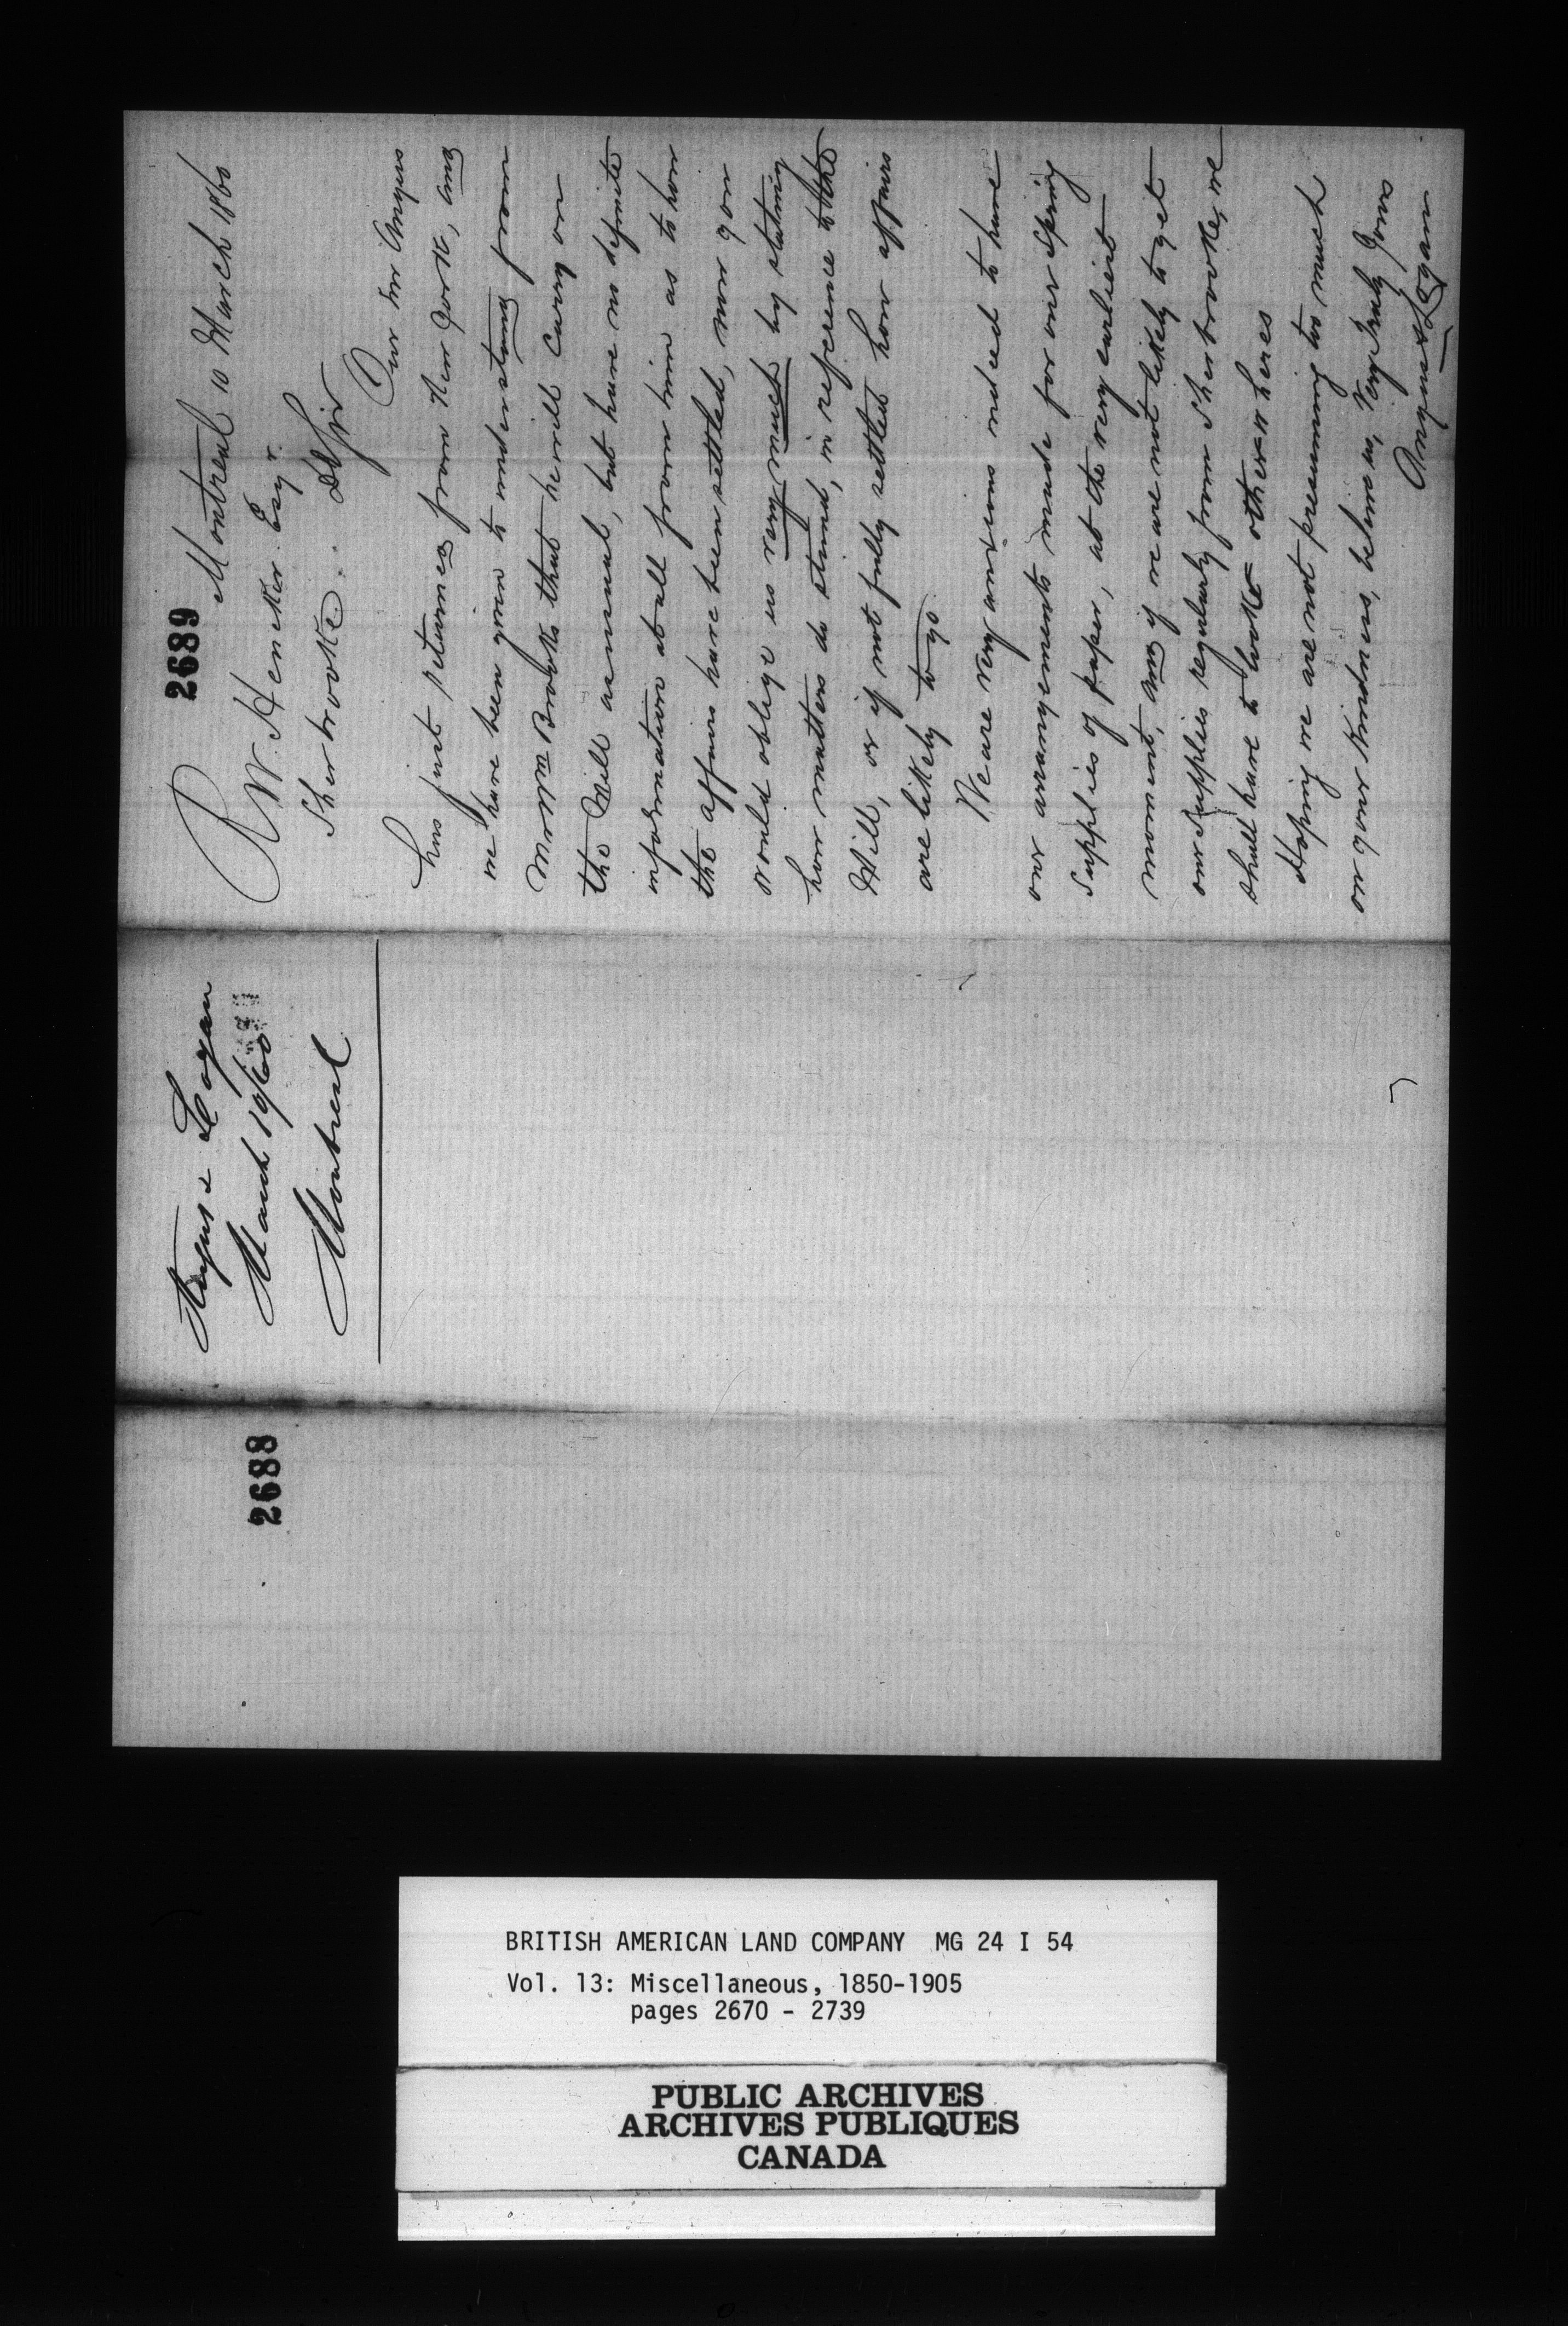 2689
Montreal 10 March 1860
R. W. Heneker Esqr.
Sherbrooke.
D Sir
Our Mr Angus
has just returned from New York, and
we have been given to understand from
Mr Wm Brooks that he will carry on
the Mill as usual, but have no definite
information at all from him as to how
the affairs have been settled, now you
would oblige us very much by stating
how matters do stand, in reference to the
Mill, or if not fully settled how affairs
are likely to go.
We are very anxious indeed to have
our arrangements made for our Spring
Supplies of paper, at the very earliest
moment, and if we are not likely to get
our supplies regularly from Sherbrooke, we
shall have to look otherwheres
Hoping we are not presuming too much
on your kindness, believe us, Very Truly Yours
Angus & Logan
Angus & Logan
March 10/60
Montreal
2688
BRITISH AMERICAN LAND COMPANY MG 24 I 54
Vol. 13: Miscellaneous, 1850-1905
pages 2670 - 2739
PUBLIC ARCHIVES
ARCHIVES PUBLIQUES
CANADA